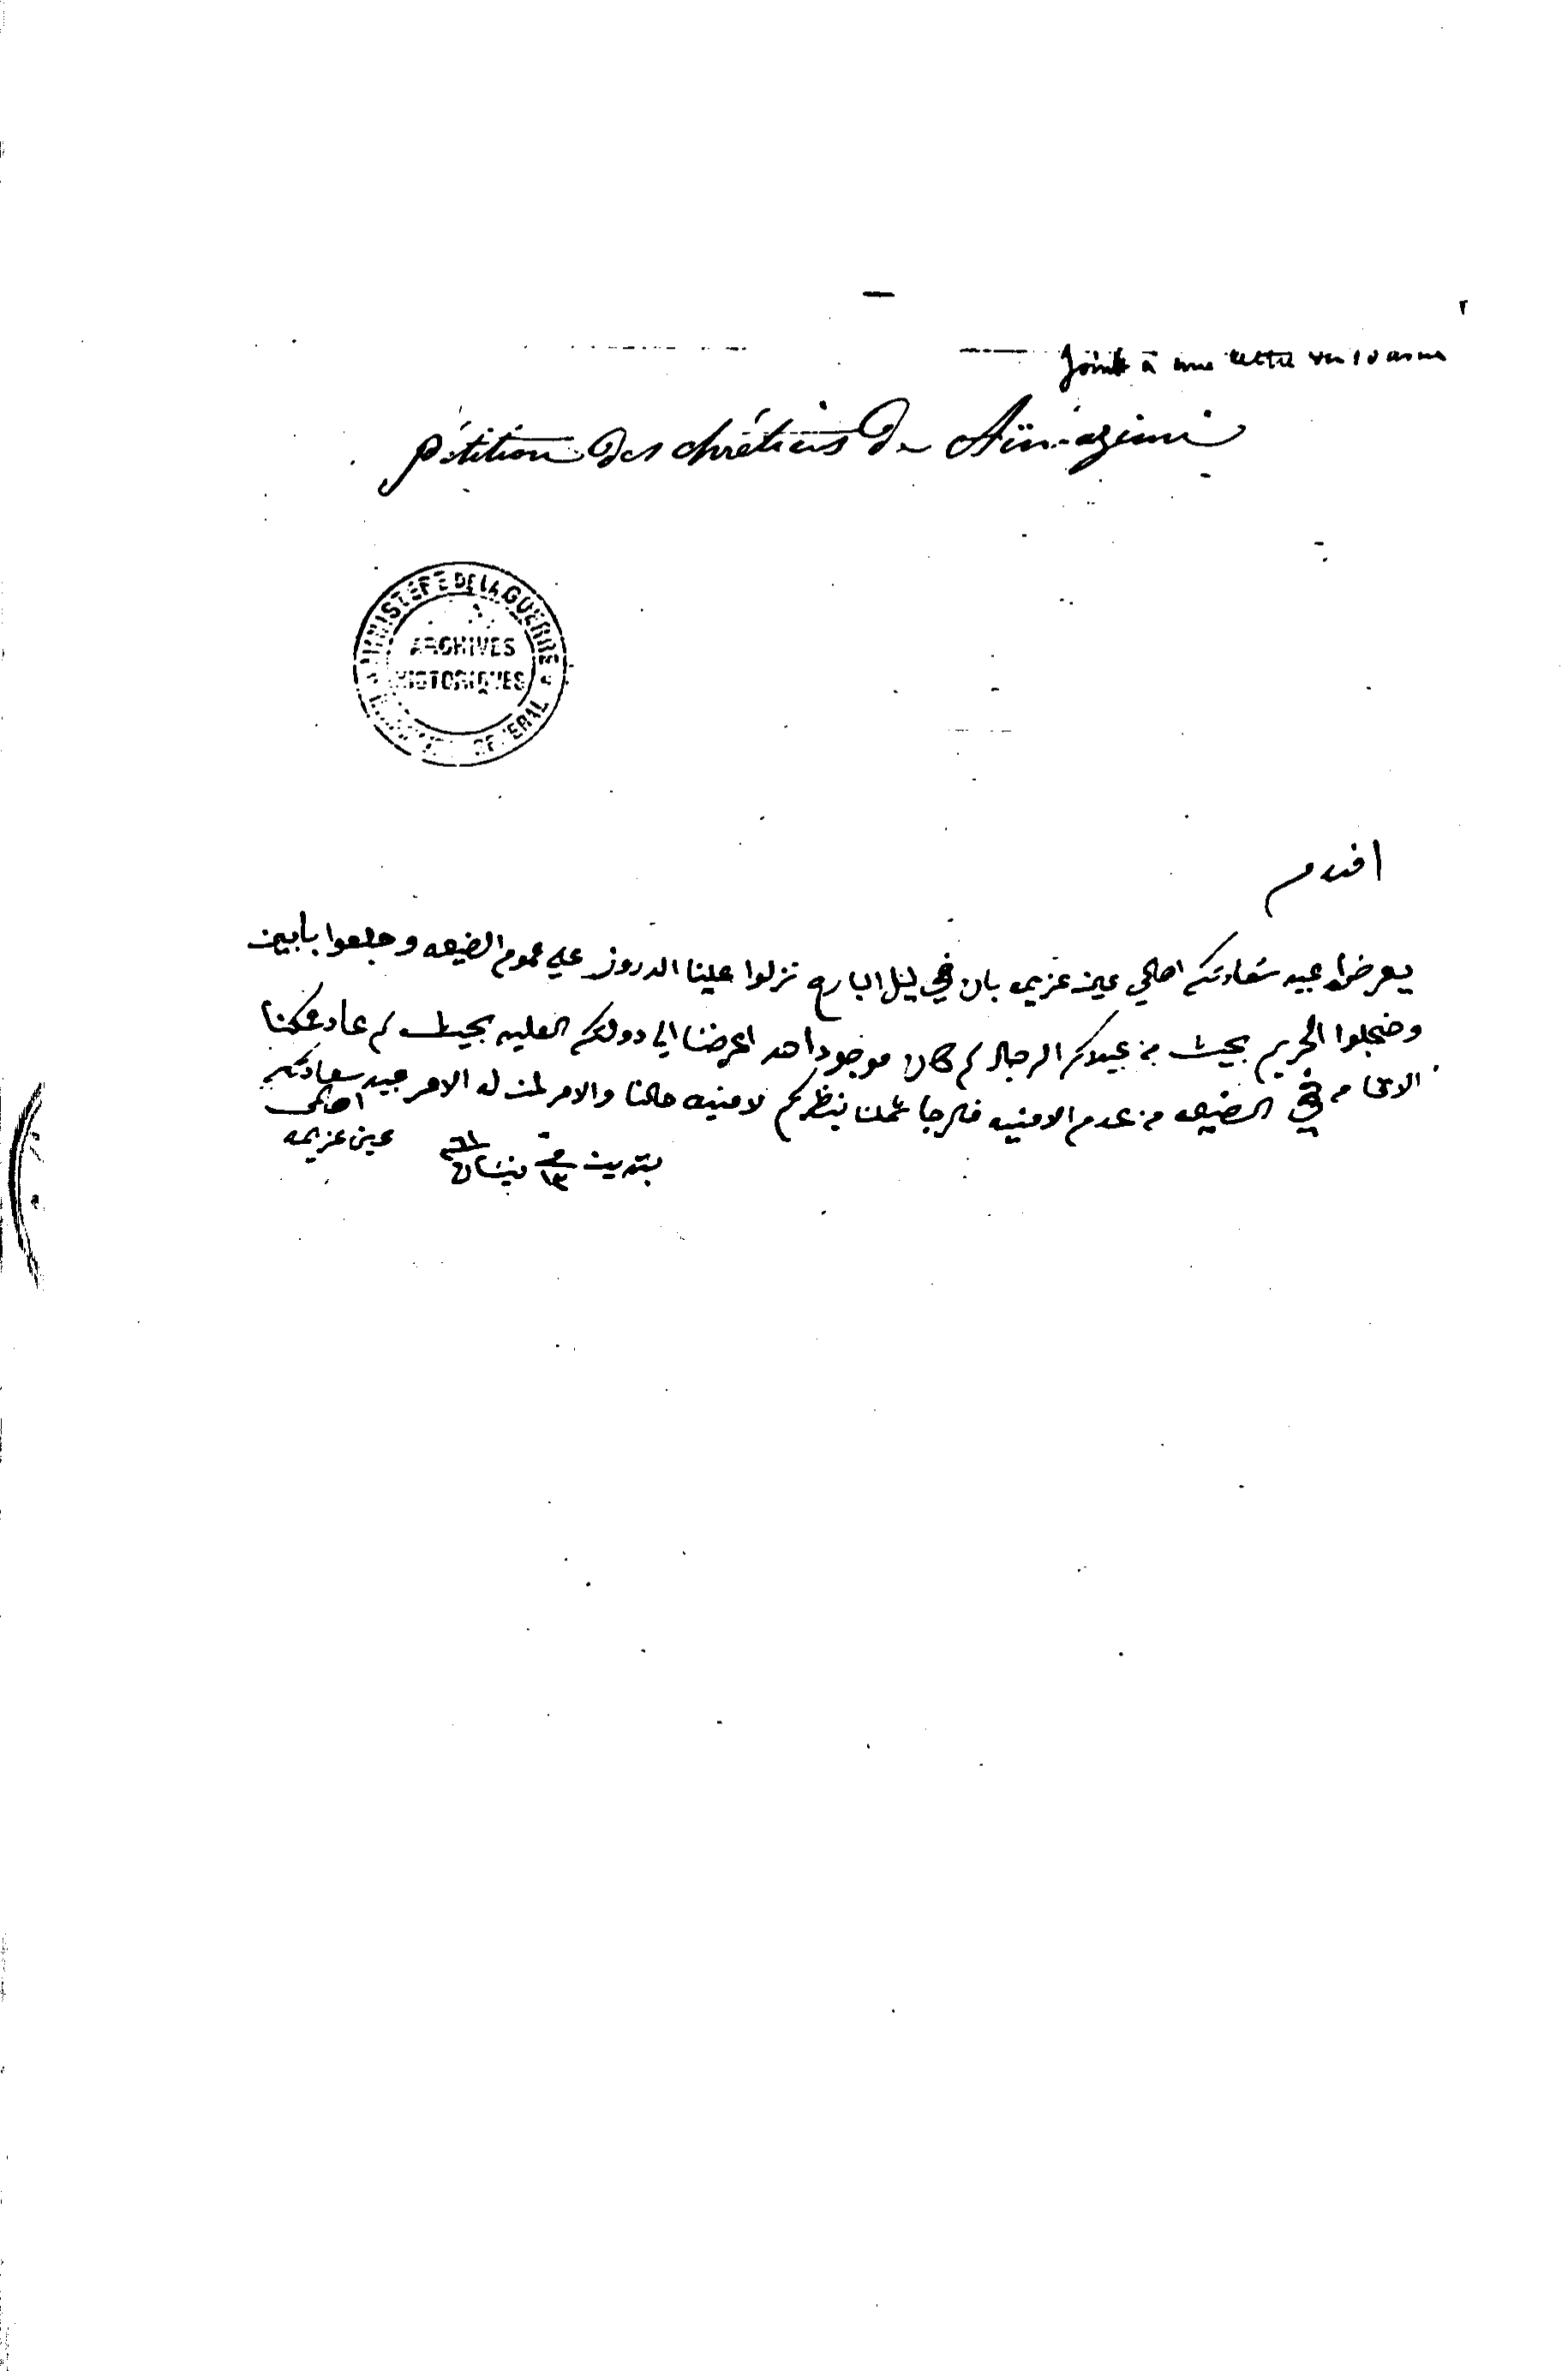 Joint à une lettre du 10 avril
pétition des chrétiens de Aïn-azimi
MINISTÈRE DE LA GUERRE
ARCHIVES
HISTORIQUES
GENERAL
افندم
يعرضوا عبيد سعادتكم اهالي عين عزيمه بان في ليل البارح نزلوا علينا الدروز على عموم الضيعه وخلعوا بابين
وخجلوا الحريم بحيث من عبيدكم الرجال لم كان موجود احد اعرضنا الى دولتكم العليه بحيث لم عاد يمكننا
الاقامه في الضيعه من عدم الامنيه فالرجا عملنا بنظركم لامنيه حالنا والامر لمن له الامر عبيد سعادتكم
اهالي
عين عزيمه
بتدين في ١٣ نيسان ٦١